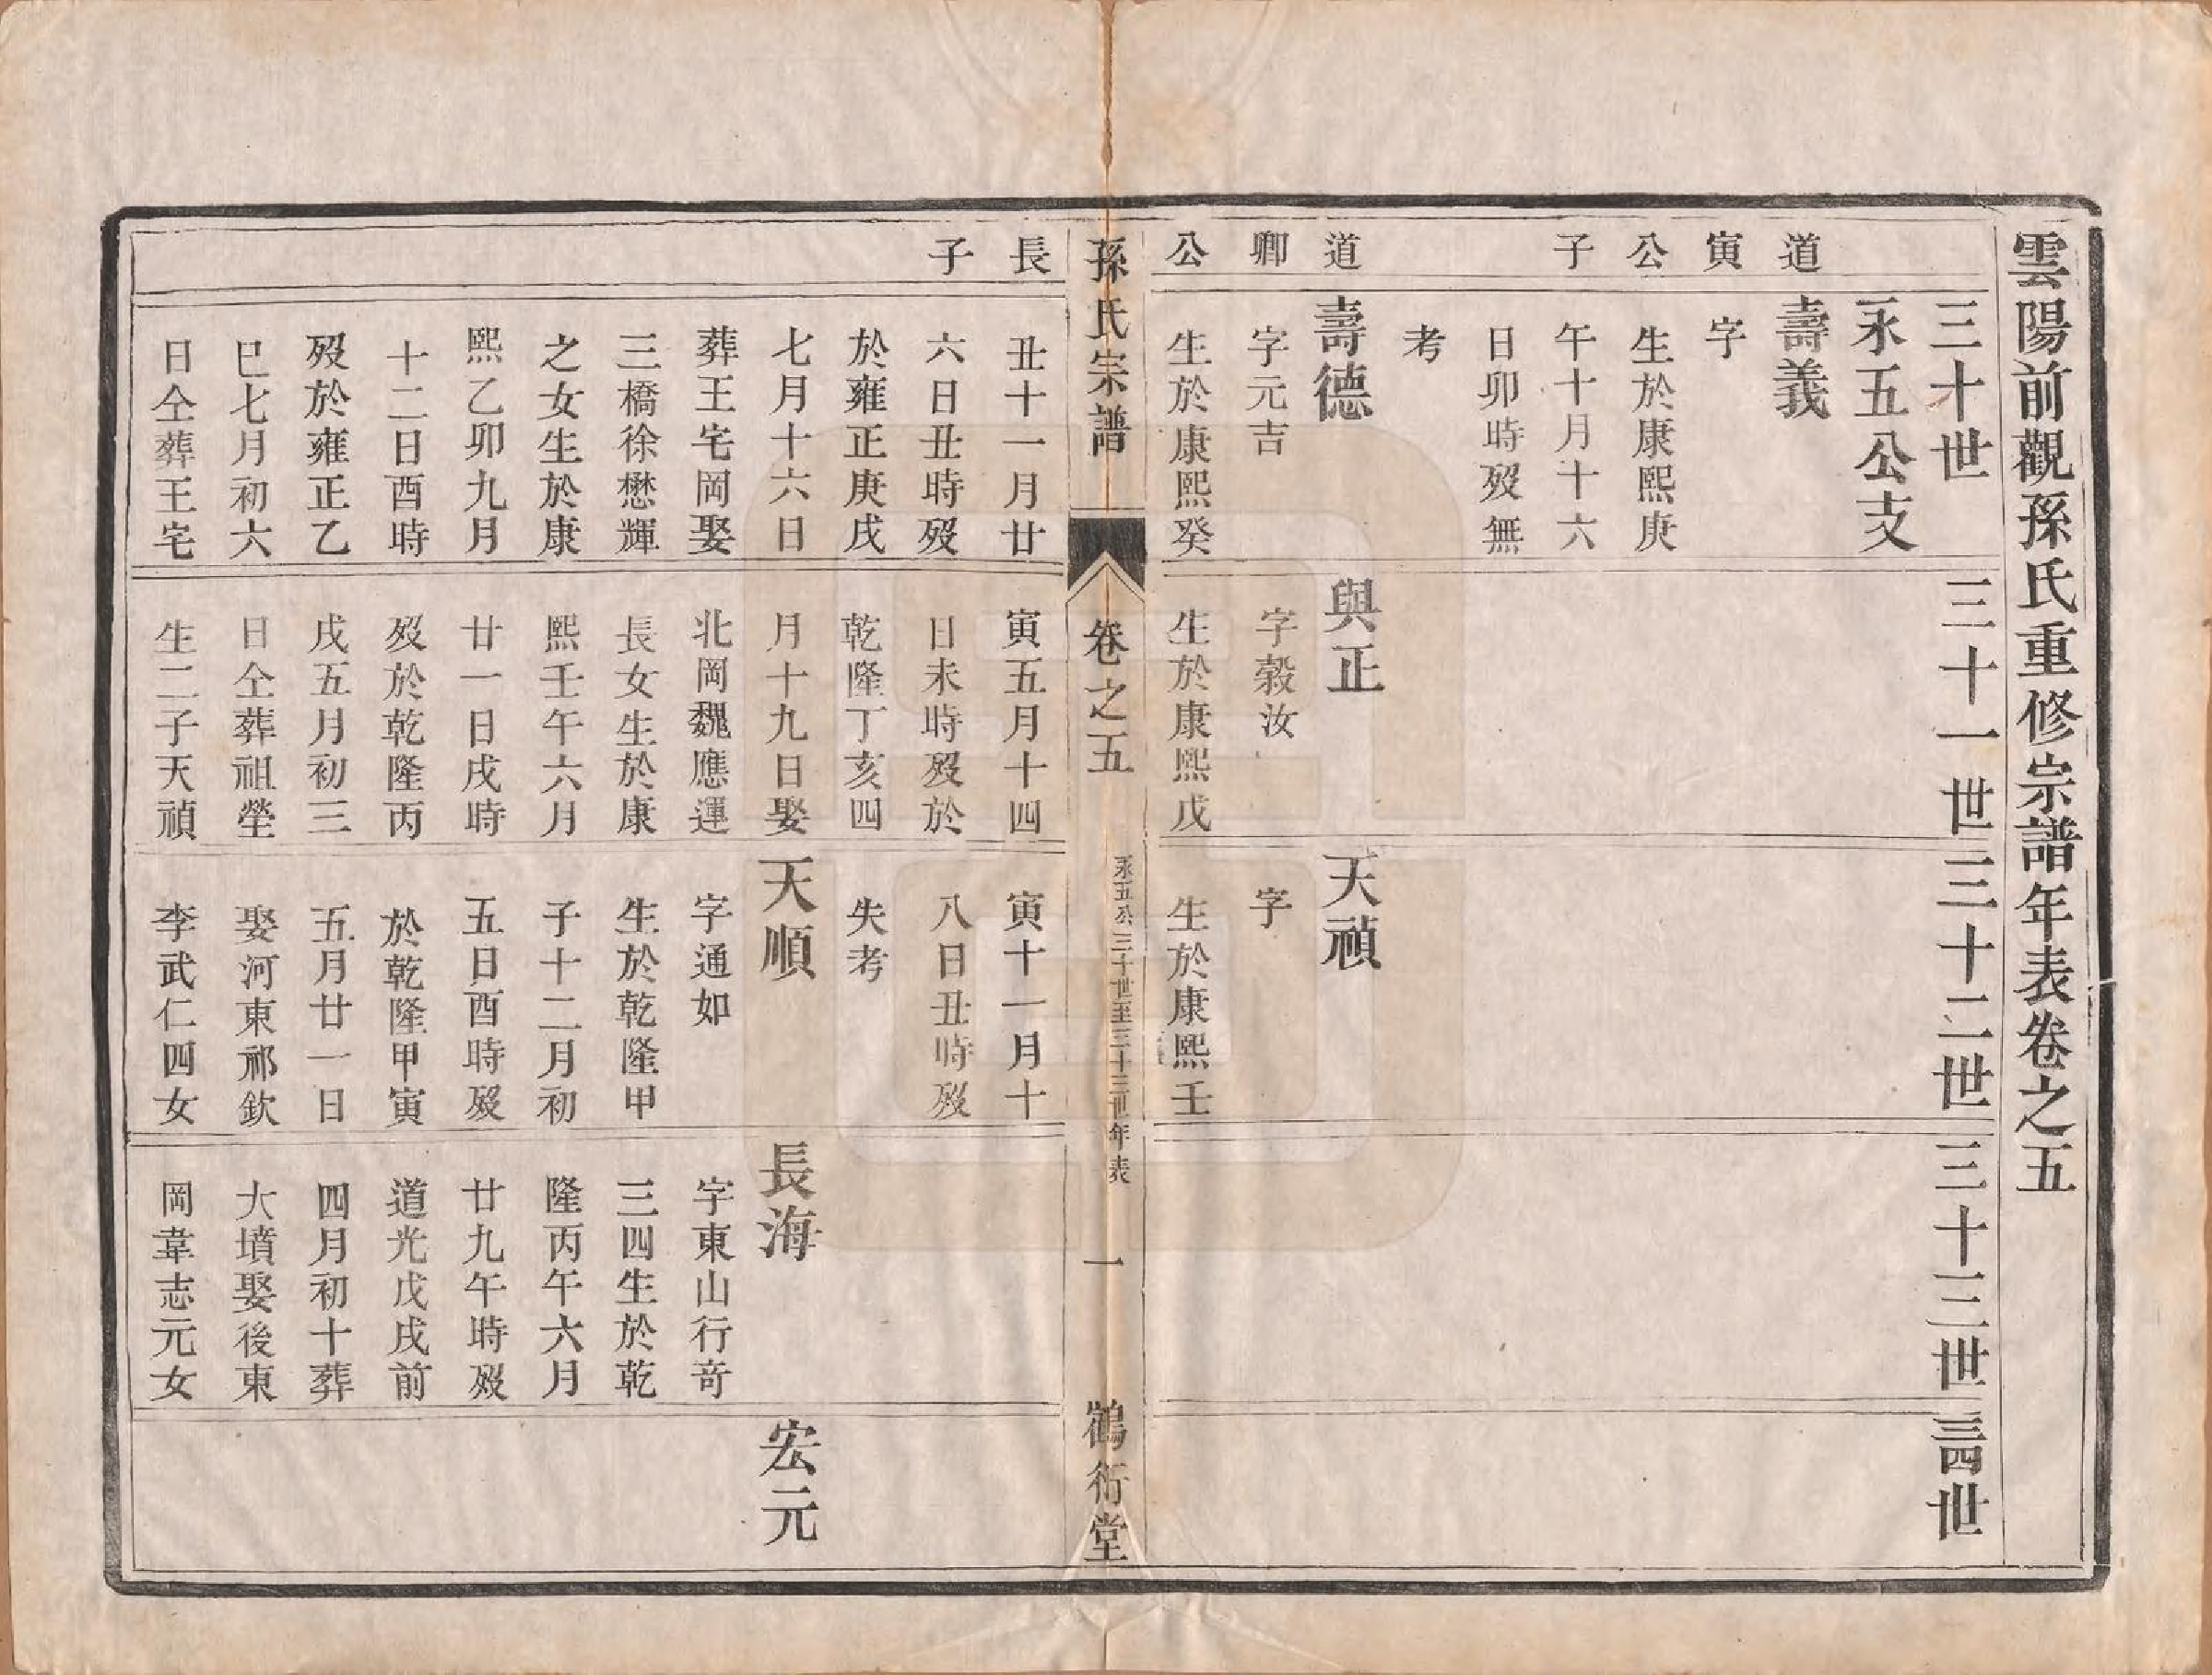 雲陽前觀孫氏重修宗譜年表卷之五
三十世
三十一世
三十二世
三十三世
三十四世
永五公支
道寅公子
壽義
字
生於康熙庚
午十月十六
日卯時歿無
考
道卿公
壽德
字元吉
生於康熙癸
與正
字穀汝
生於康熙戊
天禎
字
生於康熙壬
孫氏宗譜
卷之五
永五公三十世至三十三世年表
一
鶴衍堂
長子
丑十一月廿
六日丑時歿
於雍正庚戌
七月十六日
葬王宅岡娶
三橋徐懋輝
之女生於康
熙乙卯九月
十二日酉時
歿於雍正乙
巳七月初六
日仝葬王宅
寅五月十四
日未時歿於
乾隆丁亥四
月十九日娶
北岡魏應運
長女生於康
熙壬午六月
廿一日戌時
歿於乾隆丙
戌五月初三
日仝葬祖塋
生二子天禎
寅十一月十
八日丑時歿
失考
天順
字通如
生於乾隆甲
子十二月初
五日酉時歿
於乾隆甲寅
五月廿一日
娶河東祁欽
李武仁四女
長海
字東山行奇
三四生於乾
隆丙午六月
廿九午時歿
道光戊戌前
四月初十葬
大墳娶後東
岡韋志元女
宏元